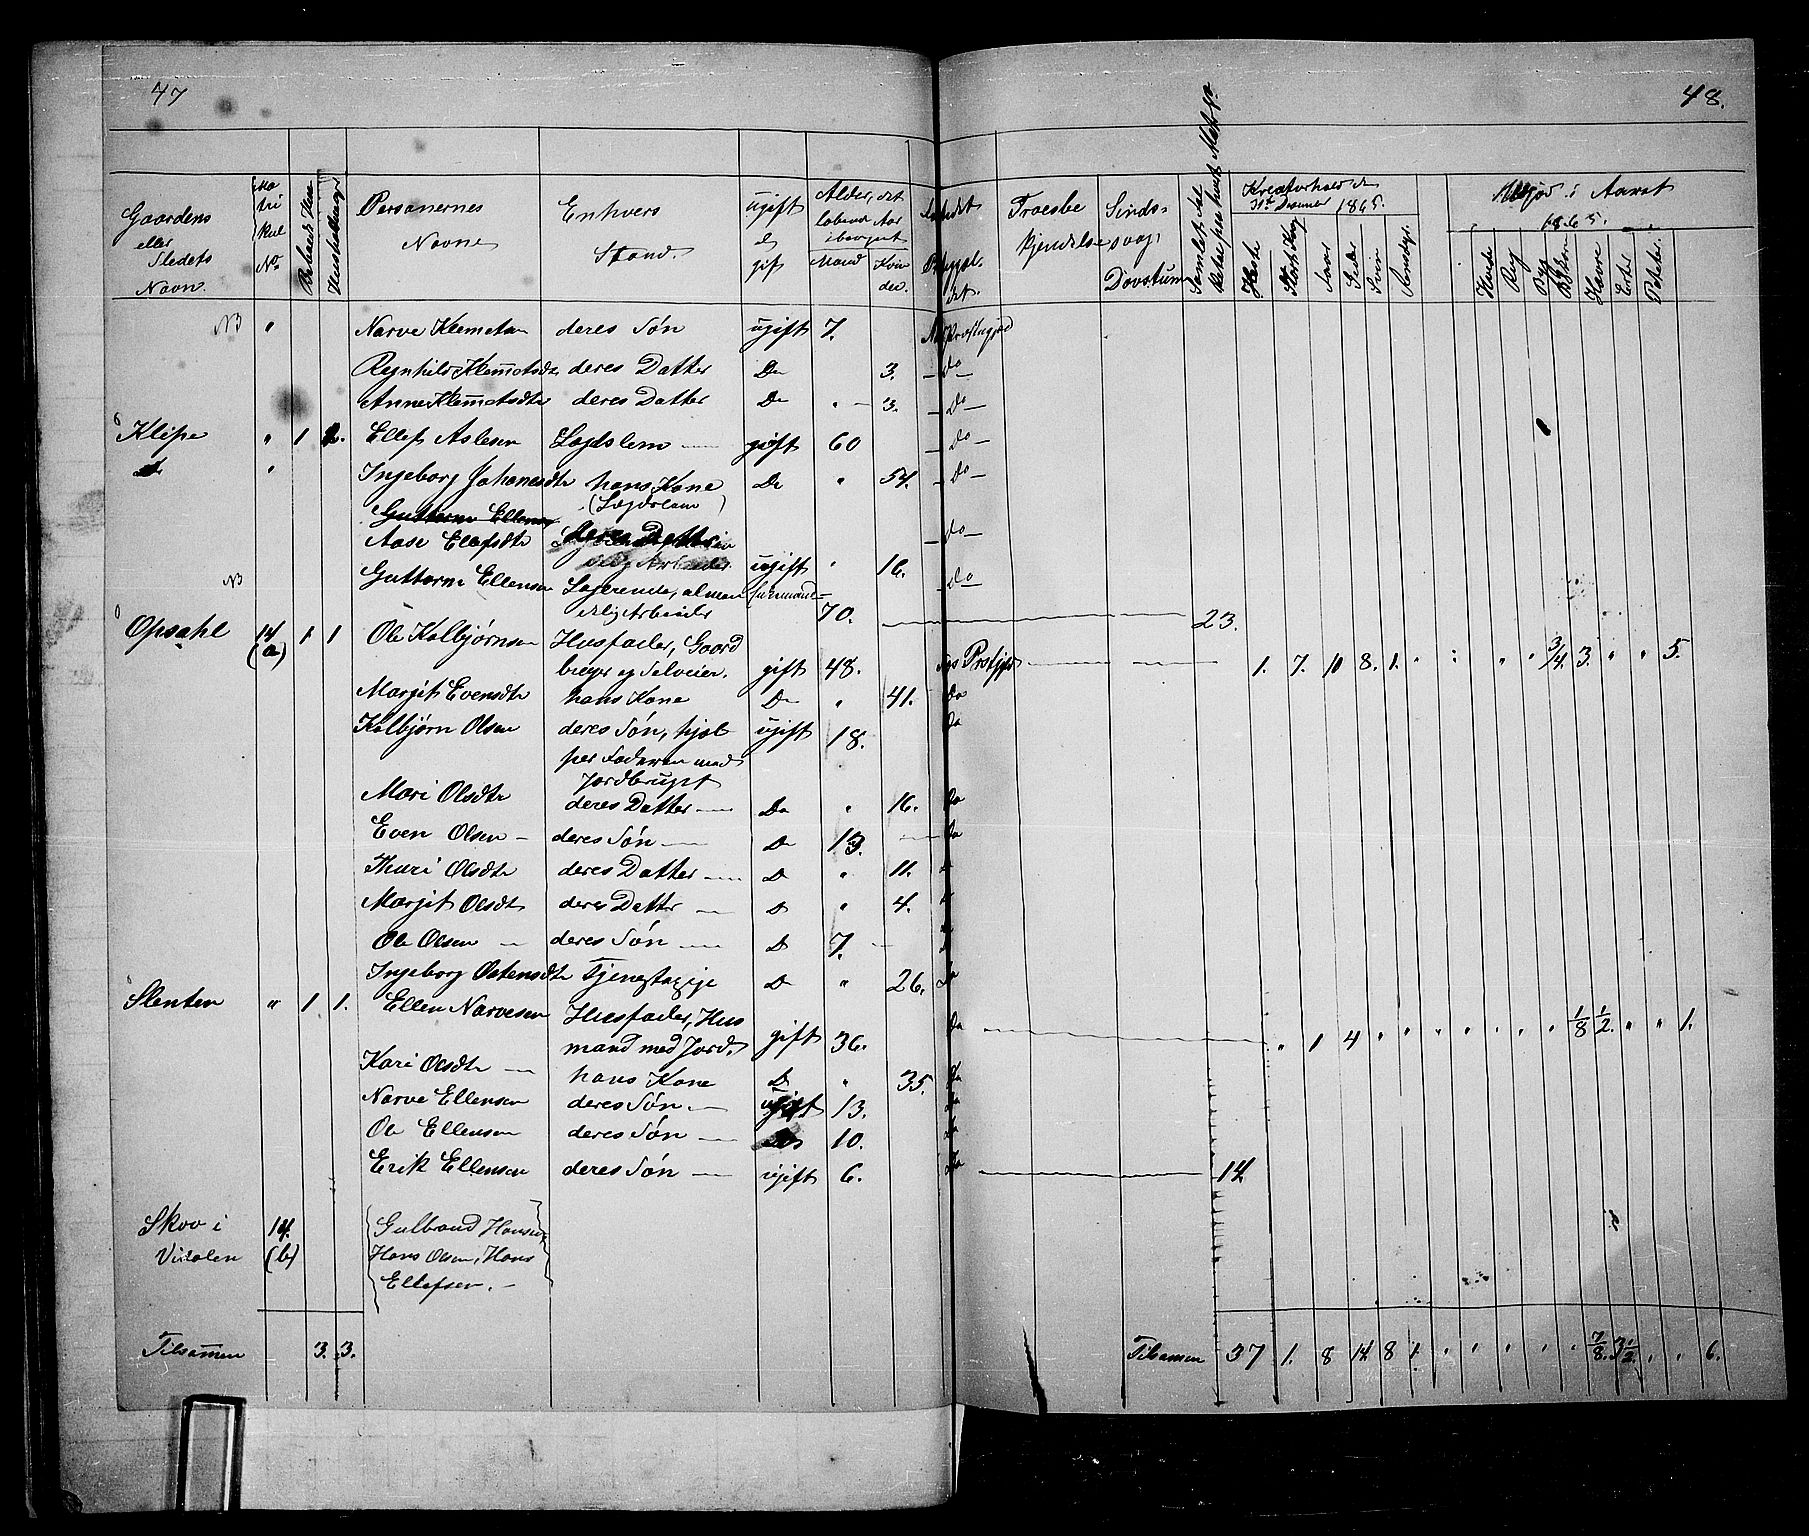 47
48.
Gaardens eller Stedets Navn. Matrikul No. Personernes Navne Enhvers Stand. ugift el gift Alder, det løbende Aar iberegnet Mand Kvinder. Troesbekjendelse Sindssvag, Døvstum Kreaturhold den 31te December 1865. Heste Stort Kvæg Faar Svin Rensdyr. Udsæd i Aaret 1865. Hvede Rug Byg Havre Erter Poteter
NB " Narve Klemetsen deres Søn ugift 7. Præstegjæld
Regnhild Klemetsdtr deres Datter Do 3. - Do -
Anne Klemetsdtr deres Datter Do " - 3. - Do -
Klipe " 1 2. Ellef Aslesen Lægdslem gift 60 - Do -
" Ingeborg Johanesdtr hans Kone Do " 54. - Do -
Guttorm Ellensen (Lægdslem)
Aase Elefsdtr deres Datter ugift " 16. - Do -
NB Guttorm Ellensen Logerende, almindelig Arbeider 70. Do 23.
Opsahl 14 (a) 1 1 Ole Kolbjørnsen Husfader, Gaardbruger og Selveier. gift 48. 1. 7. 10 8. 1. " " " " 3/4 3. " " 5.
Margit Evensdtr hans Kone Do " 41. Do
Kolbjørn Olsen deres Søn, hjælper Faderen med Jordbruget ugift 18. Do
Mari Olsdtr deres Datter Do " 16. Do
Even Olsen deres Søn Do 13. Do
Thuri Olsdtr deres Datter Do " 11. Do
Margit Olsdtr deres Datter Do " 4. Do
Ole Olsen deres Søn Do 7. Do
Ingeborg Ostensdtr Tjenestepige Do " 26. Do
Slenten " 1 1. Ellen Narvesen Husfader, Husmand med Jord. gift 36. Do " 1 4 " " " " " " 1/8 1/2. " " 1.
Kari Olsdtr hans Kone Do " 35. Do
Narve Ellensen deres Søn ugift 13. Do
Ole Ellensen deres Søn Do 10. Do
Erik Ellensen deres Søn ugift 6. Do 14
Skov i Vidalen 14. (b) Gulbrand Hansen, Hans Olsen, Hans Ellefsen.
Tilsammen 3. 3. Tilsamen 37 1. 8 14 8 1. " " " " " 7/8. 3 1/2. " " 6.